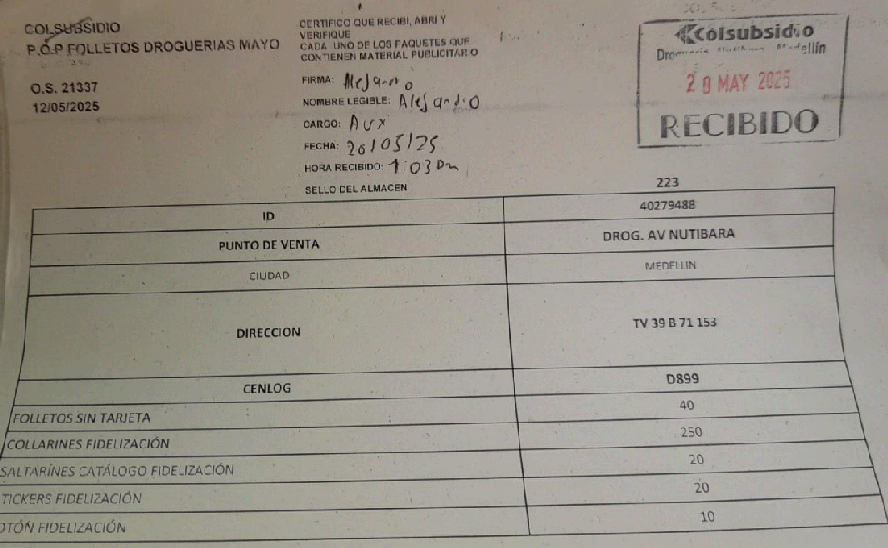 COLSUBSIDIO
P.O.P FOLLETOS DROGUERIAS MAYO
O.S. 21337
12/05/2025
CERTIFICO QUE RECIBI, ABRI Y
VERIFIQUE
CADA UNO DE LOS PAQUETES QUE
CONTIENEN MATERIAL PUBLICITARIO
FIRMA: Alejandro
NOMBRE LEGIBLE: Alejandro
CARGO: Aux
FECHA: 20/05/25
HORA RECIBIDO: 1:03 Pm
SELLO DEL ALMACEN
Colsubsidio
20 MAY 2025
RECIBIDO
223
ID 40279488
PUNTO DE VENTA DROG. AV NUTIBARA
CIUDAD MEDELLIN
DIRECCION TV 39 B 71 153
CENLOG D899
FOLLETOS SIN TARJETA 40
COLLARINES FIDELIZACIÓN 250
SALTARINES CATÁLOGO FIDELIZACIÓN 20
TICKERS FIDELIZACIÓN 20
OTÓN FIDELIZACIÓN 10